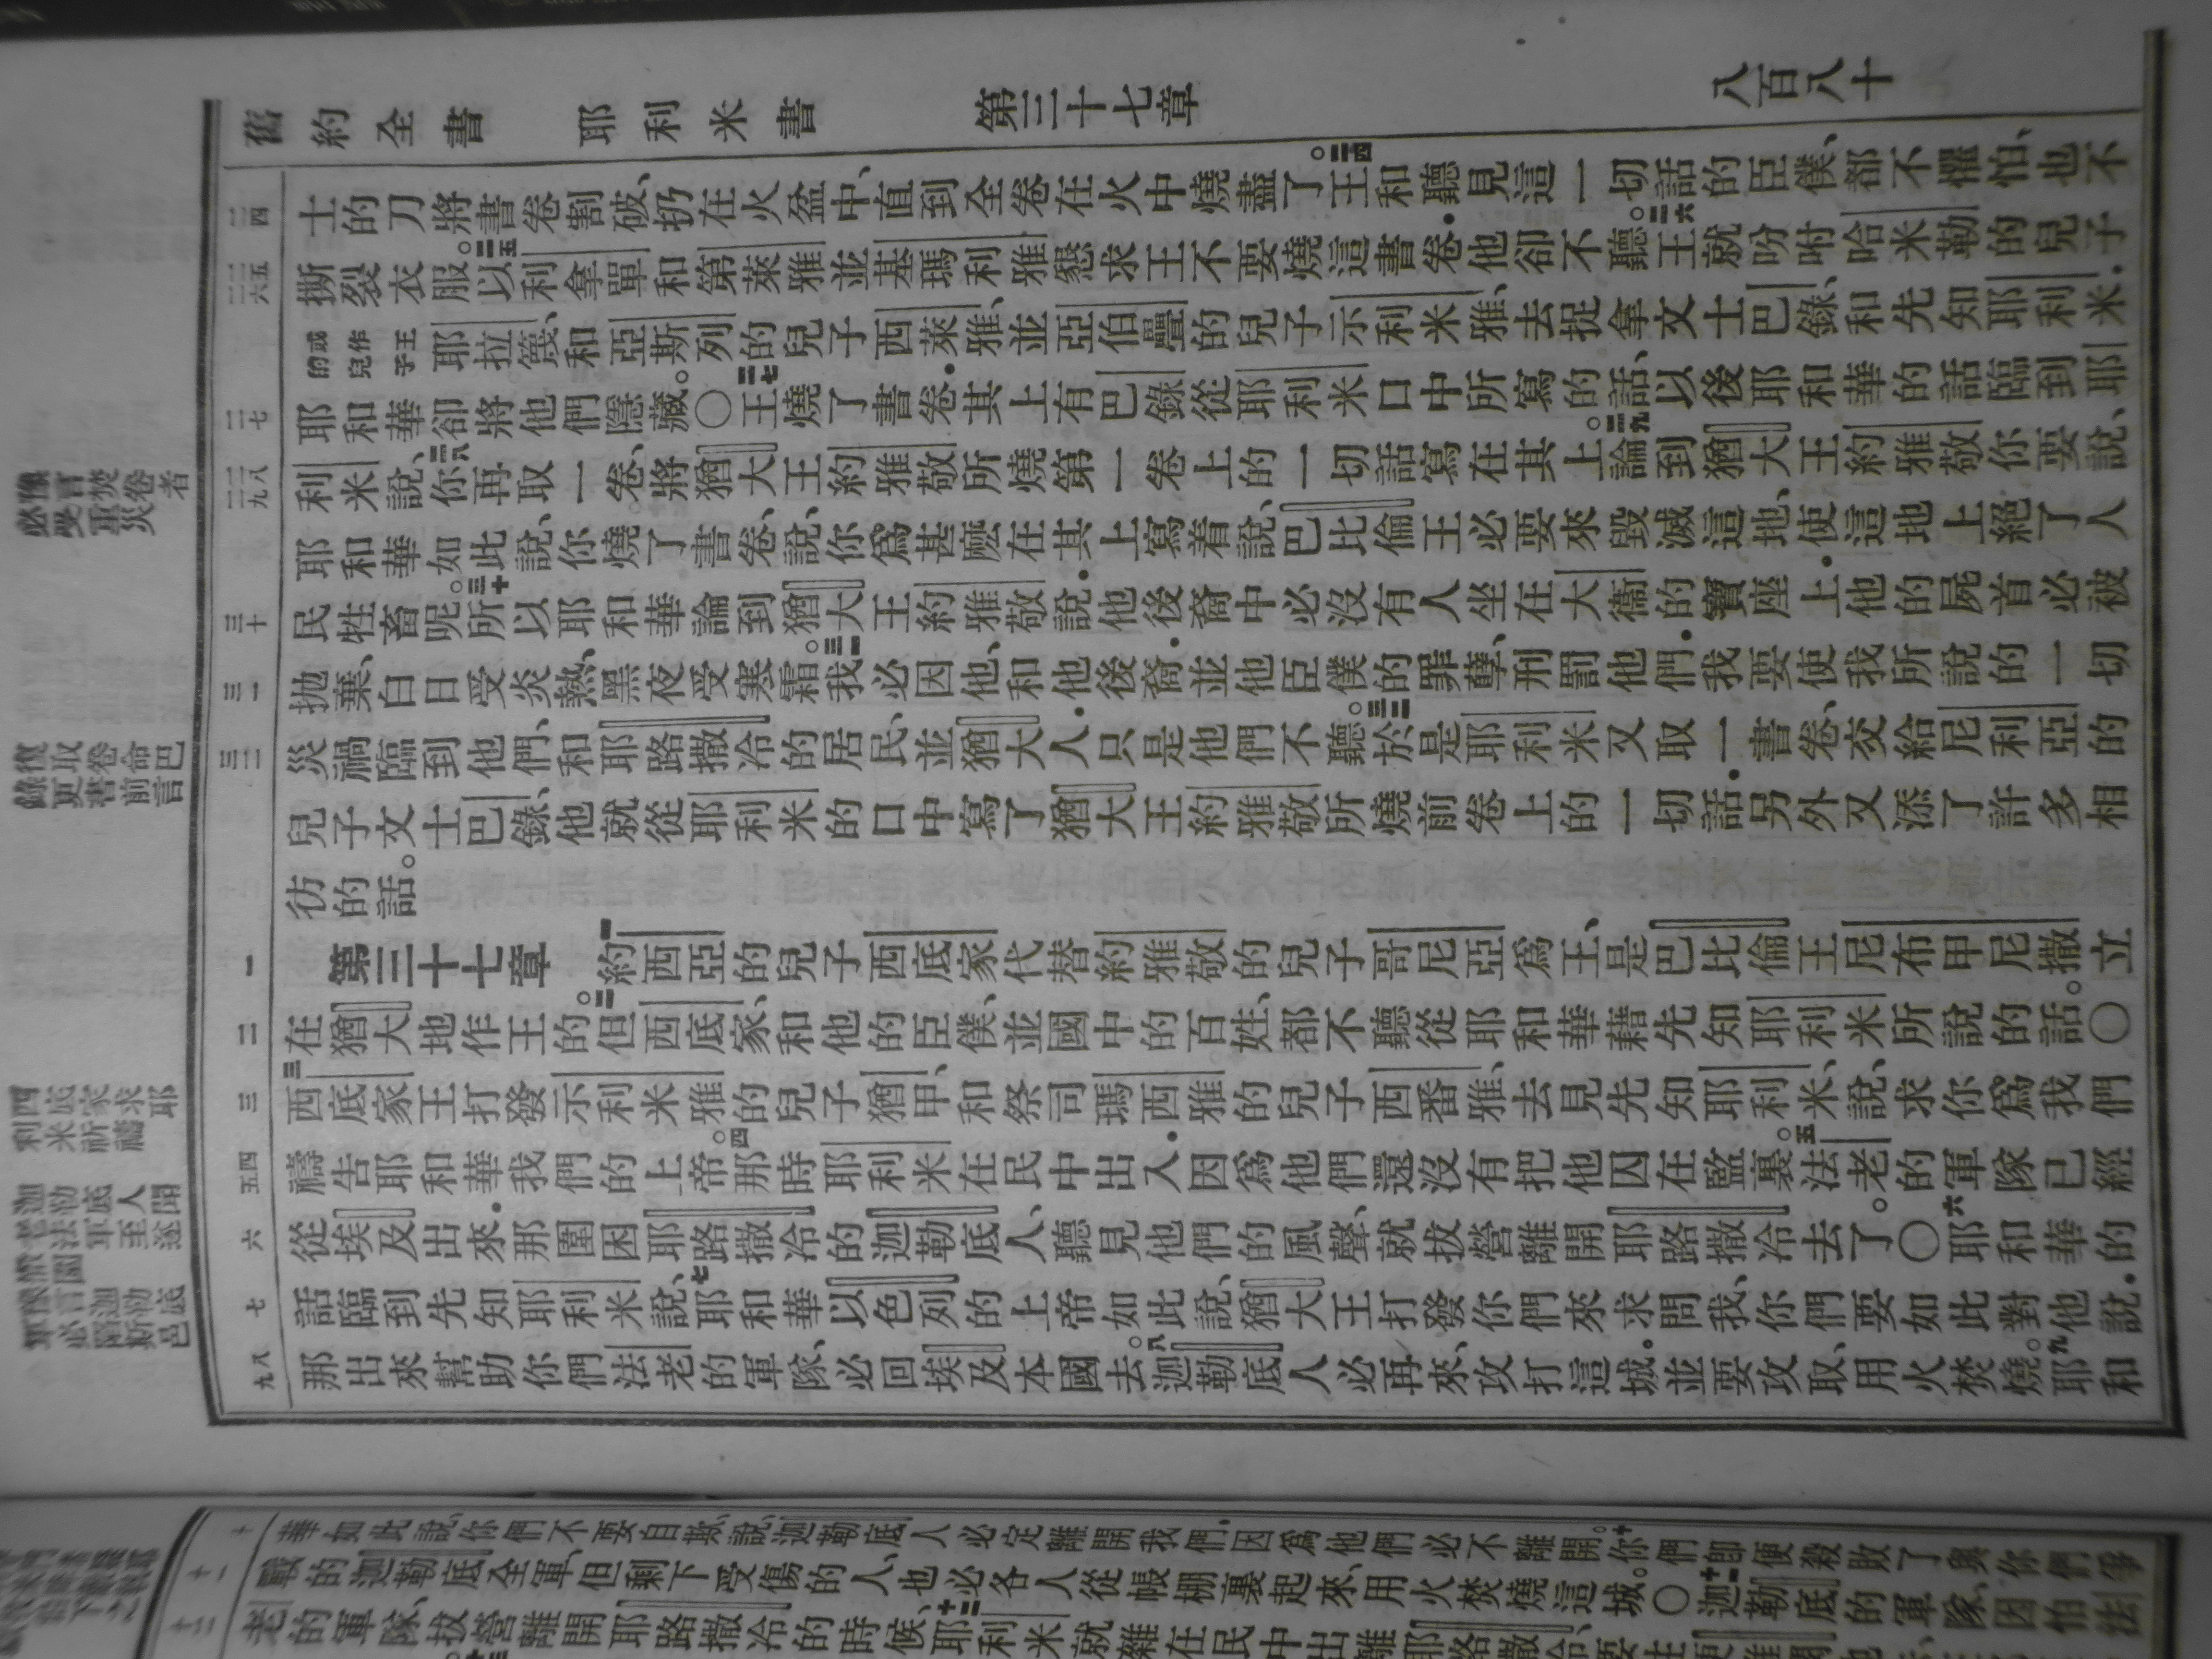 舊約全書 耶利米書 第三十七章 八百八十
二四 士的刀將書卷割破、扔在火盆中、直到全卷在火中燒盡了。二四王和聽見這一切話的臣僕、都不懼怕、也不
二五 二六 撕裂衣服。二五以利拿單和第萊雅並基瑪利雅懇求王不要燒這書卷．他卻不聽。二六王就吩咐哈米勒的兒子
或作王的兒子 耶拉篾、和亞斯列的兒子西萊雅、並亞伯疊的兒子示利米雅、去捉拿文士巴錄、和先知耶利米．
二七 耶和華卻將他們隱藏。〇二七王燒了書卷．其上有巴錄從耶利米口中所寫的話、以後耶和華的話臨到耶
二八 二九 利米說、二八你再取一卷、將猶大王約雅敬所燒第一卷上的一切話寫在其上。二九論到猶大王約雅敬你要說、
耶和華如此說、你燒了書卷、說、你爲甚麼在其上寫着說、巴比倫王必要來毀滅這地、使這地上絕了人
三十 民牲畜呢。三十所以耶和華論到猶大王約雅敬說．他後裔中必沒有人坐在大衞的寶座上．他的屍首必被
三一 拋棄、白日受炎熱、黑夜受寒霜。三一我必因他、和他後裔．並他臣僕的罪孽、刑罰他們．我要使我所說的一切
三二 災禍臨到他們、和耶路撒冷的居民、並猶大人．只是他們不聽。三二於是耶利米又取一書卷、交給尼利亞的
兒子文士巴錄、他就從耶利米的口中寫了猶大王約雅敬所燒前卷上的一切話．另外又添了許多相
彷的話。
一 第三十七章 一約西亞的兒子西底家代替約雅敬的兒子哥尼亞爲王、是巴比倫王尼布甲尼撒立
二 在猶大地作王的。二但西底家、和他的臣僕、並國中的百姓、都不聽從耶和華藉先知耶利米所說的話。〇
三 三西底家王打發示利米雅的兒子猶甲、和祭司瑪西雅的兒子西番雅、去見先知耶利米、說、求你爲我們
四 五 禱告耶和華我們的上帝。四那時耶利米在民中出入．因爲他們還沒有把他囚在監裏。五法老的軍隊已經
六 從埃及出來．那圍困耶路撒冷的迦勒底人、聽見他們的風聲、就拔營離開耶路撒冷去了。〇六耶和華的
七 話臨到先知耶利米說、七耶和華以色列的上帝如此說、猶大王打發你們來求問我、你們要如此對他說．
八 九 那出來幫助你們法老的軍隊、必回埃及本國去。八迦勒底人必再來、攻打這城．並要攻取、用火焚燒。九耶和
豫言焚卷者必受重災
復取卷命巴錄更書前言
西底家求耶利米祈禱
迦勒底人聞法老軍至遂
十 華如此說、你們不要自欺、說、迦勒底人必定離開我們．因爲他們必不離開。十你們即便殺敗了與你們爭
十一 戰的迦勒底全軍、但剩下受傷的人、也必各人從帳棚裏起來、用火焚燒這城。〇十一迦勒底的軍隊、因怕法
十二 老的軍隊、拔營離開耶路撒冷的時候、十二耶利米就雜在民中出離耶路撒冷、